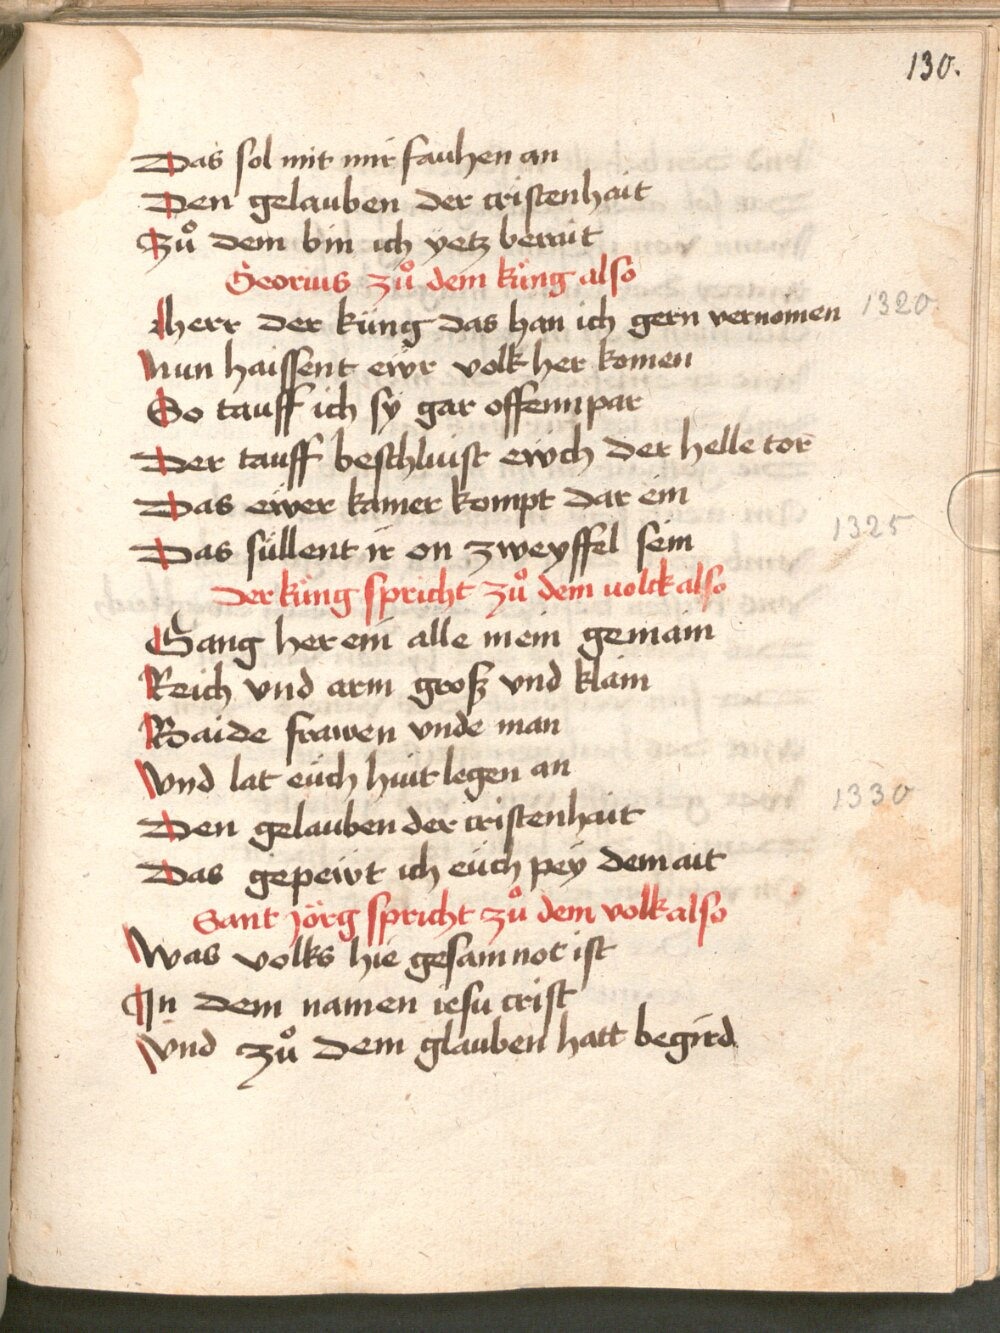 130.
Das sol mit mir fauhen an
Den gelauben der cristenhait
Zů dem bin ich yetz berait
Georius zů dem küng also
Herr der küng das han ich gern vernomen 1320
Nun haissent ewr volk her komen
So tauff ich sÿ gar offennpar
Der tauff beschluist ewch der helle tor
Das ewer kainer kompt dar ein
Das süllent ir on zweyffel sein 1325
Der küng spricht zů dem volck also
Gang her ein alle mein gemain
Reich vnd arm groß vnd klain
Baide frawen vnde man
Vnd lat eüch huit legen an
Den gelauben der cristenhait 1330
Das gepewt ich eüch pey dem ait
Sant Jörg spricht zů dem volk also
Was volks hie gesamnot ist
In dem namen iesu crist
Vnd zů dem glauben hatt begird